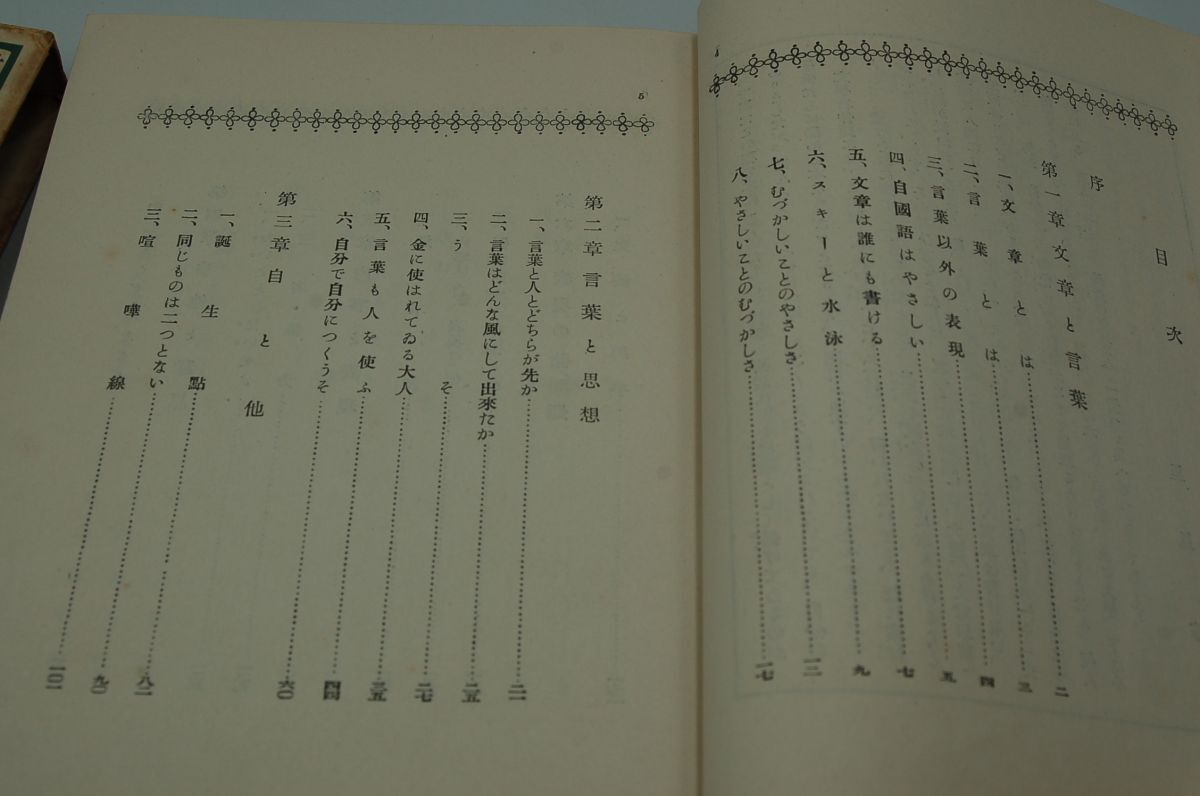 目次
序
第一章 文章と言葉
一、文章とは……二
二、言葉とは……三
三、言葉以外の表現……四
四、自國語はやさしい……五
五、文章は誰にも書ける……七
六、スキーと水泳……九
七、むづかしいことのやさしさ……一二
八、やさしいことのむづかしさ……一七
5
第二章 言葉と思想
一、言葉と人とどちらが先か……二一
二、言葉はどんな風にして出來たか……二五
三、うそ……二七
四、金に使はれてゐる大人……三五
五、言葉も人を使ふ……四四
六、自分で自分につくうそ……六〇
第三章 自と他
一、誕生點……八二
二、同じものは二つとない……九〇
三、喧嘩線……一〇一